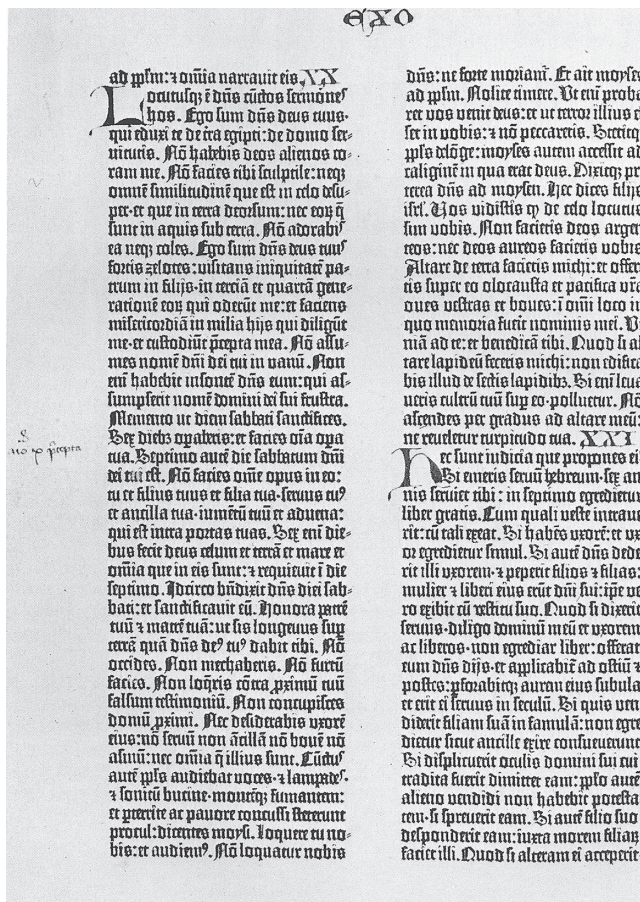 EXO
ad pp̄lm: ⁊ om̄ia narrauit eis XX
Locutusq̨ ē dn̄s cūctos sermōne⸝
hos. Ego sum dn̄s deus tuus·
qui eduxi te de t̄ra egipti: de domo ser-
uitutis. Nō habebis deos alienos co-
ram me. Nō facies tibi sculptile: neq̨
omnē similitudinē que est in celo desu-
per· et que in terra deorsum: nec eoꝝ q̄
sunt in aquis sub terra. Nō adorabis
ea neq̨ coles. Ego sum dn̄s deus tuus
fortis zelotes: uisitans iniquitatē pa-
trum in filijs· in terciā et quartā gene-
rationē eoꝝ qui oderūt me: et faciens
misericordiā in milia hijs qui diligūt
me· et custodiūt p̄cepta mea. Nō assu-
mes nomē dn̄i dei tui in vanū. Non
enī habebit insontē dn̄s eum: qui as-
sumpserit nomē domini dei sui frustra.
Memento ut diem sabbati sanctifices.
Sex dieb⸝ opaberis: et facies om̄ia opa
tua. Septimo autē die sabbatum dn̄i
dei tui est. Nō facies om̄e opus in eo:
tu et filius tuus et filia tua· seruus tu⁹
et ancilla tua· iumētū tuū et aduena:
qui est intra portas tuas. Sex enī die-
bus fecit deus celum et terrā et mare et
om̄ia que in eis sunt: ⁊ requieuit ī die
septimo. Idcirco bn̄dixit dn̄s diei sab-
bati: et sanctificauit eū. Honora patrē
tuū ⁊ matrē tuā: ut sis longeuus sup̄
terrā quā dn̄s de⁹ tu⁹ dabit tibi. Nō
occides. Non mechaberis. Nō furtū
facies. Non loq̄ris cōtra p̄ximū tuū
falsum testimoniū. Non concupisces
domū p̄ximi. Nec desiderabis uxorē
eius: nō seruū non ācillā nō bouē nō
asinū: nec om̄ia q̄ illius sunt. Cūctus
autē pp̄ls audiebat uoces· ⁊ lampades·
⁊ sonitū bucine· montēq̨ fumantem:
et perterriti ac pauore concussi steterunt
procul: dicentes moysi. Loquere tu no-
bis: et audiem⁹. Nō loquatur nobis
p̄cepta
dn̄s: ne forte moriam̄. Et ait moyse
ad pp̄lm. Nolite timere. Ut enī proba
ret vos venit deus: et ut terror illius e
set in vobis: ⁊ nō peccaretis. Stetitq̨
pp̄ls de lōge: moyses autem accessit ad
caliginē in qua erat deus. Dixitq̨ pr
terea dn̄s ad moysen. Hec dices filijs
isr̄l. Uos vidistis q̨ de celo locutus
sim vobis. Non facietis deos argen
teos: nec deos aureos facietis vobis
Altare de terra facietis michi: et offere
tis super eo olocausta et pacifica vr̄a
oues vestras et boues: ī om̄i loco in
quo memoria fuerit nominis mei. V
niā ad te: et benedicā tibi. Quod si al
tare lapideū feceris michi: non edifica
bis illud de sectis lapidib⸝. Si enī leua
ueris cultrū tuū sup̄ eo· polluetur. Nō
ascendes per gradus ad altare meū:
ne reueletur turpitudo tua. XXI
Hec sunt iudicia que propones ei
Si emeris seruū hebreum· sex an
nis seruiet tibi: in septimo egredietur
liber gratis. Cum quali ueste intraue
rit: cū tali exeat. Si habēs uxorē: et ux
or egredietur simul. Si autē dn̄s dede
rit illi uxorem· ⁊ peperit filios ⁊ filias:
mulier ⁊ liberi eius erūt dn̄i sui: ip̄e ve
ro exibit cū vestitu suo. Quod si dixerit
seruus· diligo dominū meū et uxorem
ac liberos· non egrediar liber: offerat
eum dn̄s dijs· et applicabit̄ ad ostiū ⁊
postes: p̄forabitq̨ aurem eius subula
et erit ei seruus in seculū. Si quis ven
diderit filiam suā in famulā: non egre
dietur sicut ancille exire consueuerunt
Si displicuerit oculis domini sui cui
tradita fuerit dimittet eam: pp̄lo autē
alieno vendēdi non habebit potesta
tem· si spreuerit eam. Si autē filio suo
desponderit eam: iuxta morem filiaꝝ
faciet illi. Quod si alteram ei acceperit